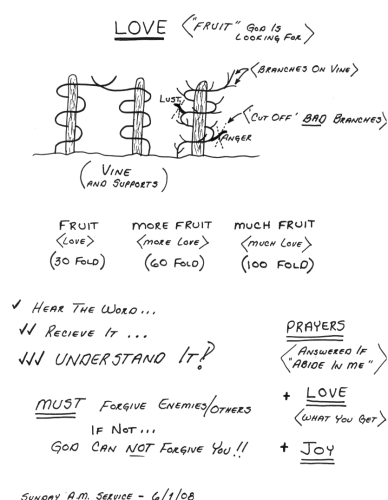 LOVE <"FRUIT" GOD IS
LOOKING FOR>
<BRANCHES ON VINE>
LUST
<"CUT OFF" BAD BRANCHES>
ANGER
(VINE
AND SUPPORTS)
FRUIT MORE FRUIT MUCH FRUIT
<LOVE> <MORE LOVE> <MUCH LOVE>
(30 FOLD) (60 FOLD) (100 FOLD)
✓ HEAR THE WORD...
✓✓ RECIEVE IT ...
✓✓✓ UNDERSTAND IT!
PRAYERS
<ANSWERED IF
"ABIDE IN ME">
+ LOVE
<WHAT YOU GET>
+ JOY
MUST FORGIVE ENEMIES/OTHERS
IF NOT...
GOD CAN NOT FORGIVE YOU!!
SUNDAY A.M. SERVICE - 6/1/08